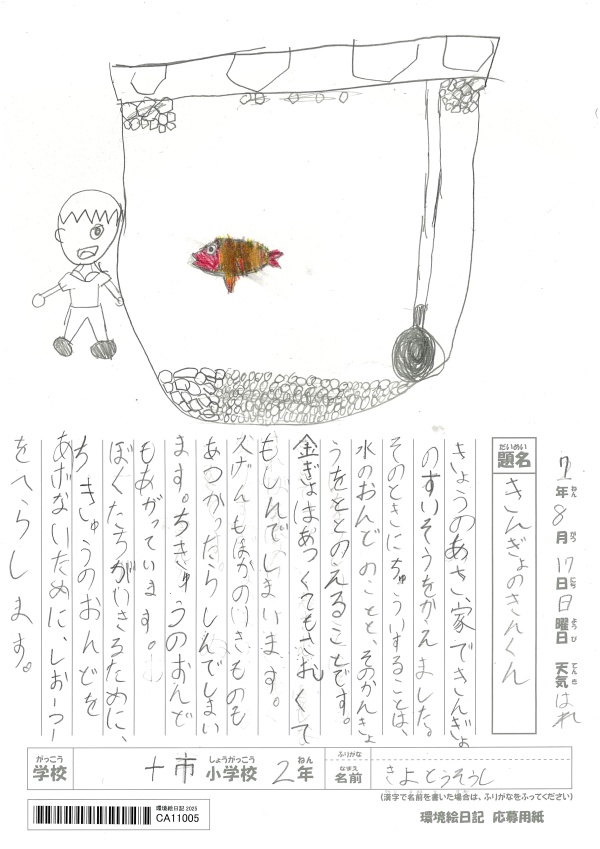 7年8月17日日曜日 天気はれ
ねん がつ にち ようび てんき
だいめい
題名 きんぎょのきんくん
きょうのあさ、家できんぎょ
のすいそうをかえました。
そのときにちゅういすることは、
水のおんどのことと、そのかんきょ
うをととのえることです。
金ぎょはあつくてもさむくて
もしんでしまいます。
人げんもほかのいきものも
あつかったらしんでしまい
ます。ちきゅうのおんど
もあがっています。
ぼくたちがいきるために、
ちきゅうのおんどを
あげないために、しお
をへらします。
がっこう しょうがっこう ねん
学校 十市小学校 2年
ふりがな
なまえ
名前 きよとうそうし
(漢字で名前を書いた場合は、ふりがなをふってください)
環境絵日記 2025
CA11005
環境絵日記 応募用紙